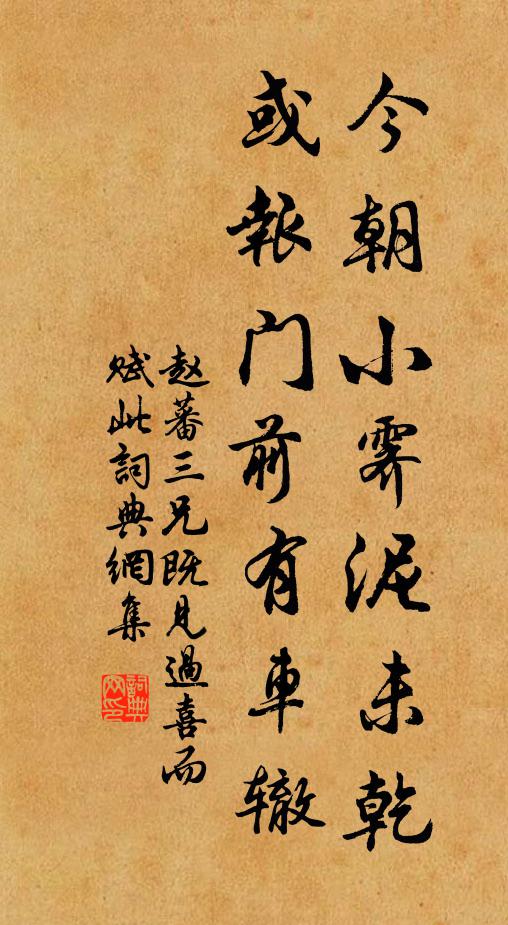 今朝小霁泥未乾
或報门前有車辙
赵蕃三兄既見過喜而
赋此詞典網集
詞典网印